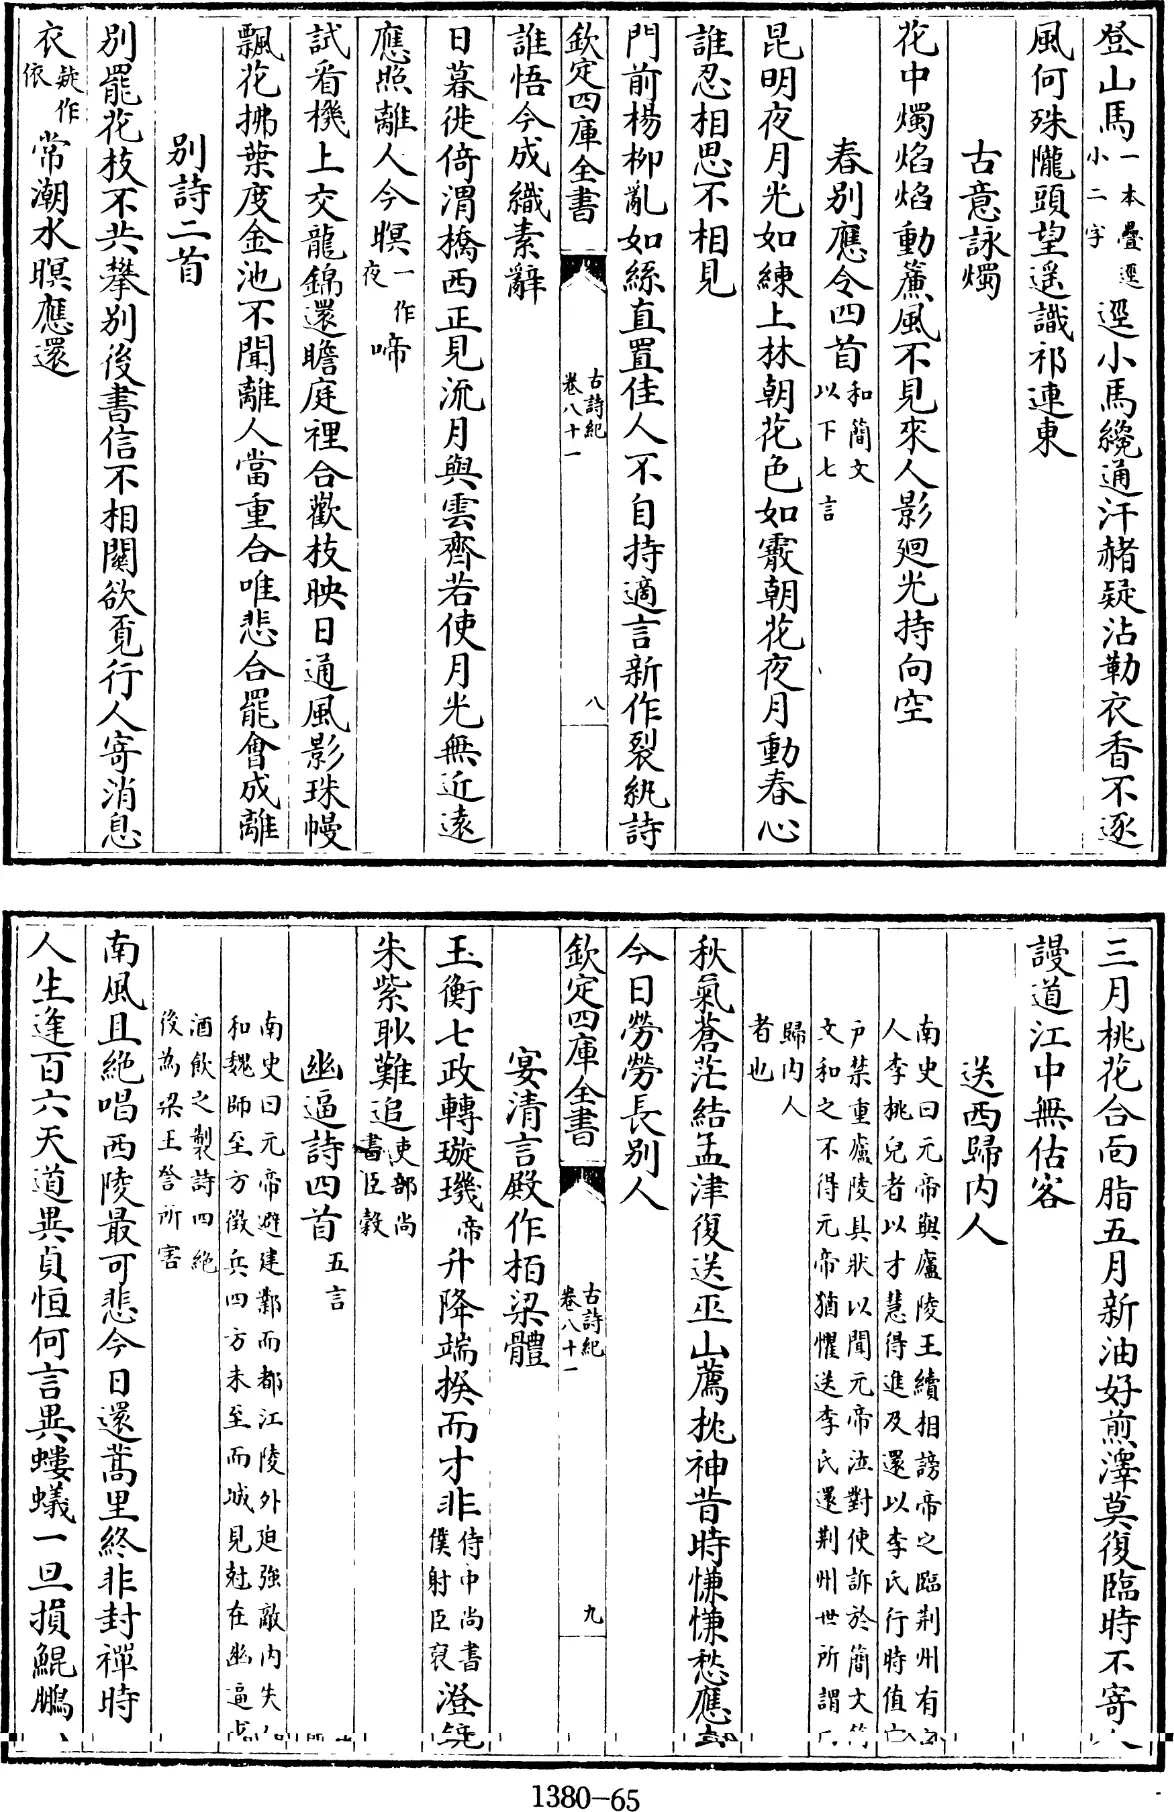 登山馬一本疊逕小二字逕小馬纔通汗赭疑沾勒衣香不逐
風何殊隴頭望遥識祁連東
古意詠燭
花中燭焰焰動簾風不見來人影廻光持向空
春别應令四首和簡文以下七言
昆明夜月光如練上林朝花色如霰朝花夜月動春心
誰忍相思不相見
門前楊柳亂如絲直置佳人不自持適言新作裂紈詩
欽定四庫全書 古詩紀卷八十一 八
誰悟今成織素辭
日暮徙倚渭橋西正見流月與雲齊若使月光無近遠
應照離人今暝一作夜啼
試看機上交龍錦還瞻庭裡合歡枝映日通風影珠幔
飄花拂葉度金池不聞離人當重合唯悲合罷會成離
别詩二首
别罷花枝不共攀别後書信不相關欲覓行人寄消息
衣疑作依常潮水暝應還
三月桃花合面脂五月新油好煎澤莫復臨時不寄
謾道江中無估客
送西歸内人
南史曰元帝與廬陵王續相謗帝之臨荆州有
人李桃兒者以才慧得進及還以李氏行時值
户禁重廬陵具狀以聞元帝泣對使訴於簡文
文和之不得元帝猶懼送李氏還荆州世所謂
歸内人
者也
秋氣蒼茫結孟津復送巫山薦枕神昔時慊慊愁應
今日勞勞長别人
欽定四庫全書 古詩紀卷八十一 九
宴清言殿作栢梁體
玉衡七政轉璇璣帝升降端揆而才非侍中尚書僕射臣褒澄
朱紫耿難追吏部尚書臣瑴
幽逼詩四首五言
南史曰元帝避建鄴而都江陵外迫強敵内失
和魏師至方徵兵四方未至而城見尅在幽逼
酒飲之製詩四絶
後為梁王詧所害
南風且絶唱西陵最可悲今日還蒿里終非封禪時
人生逢百六天道異貞恒何言異螻蟻一旦損鯤鵬
1380-65